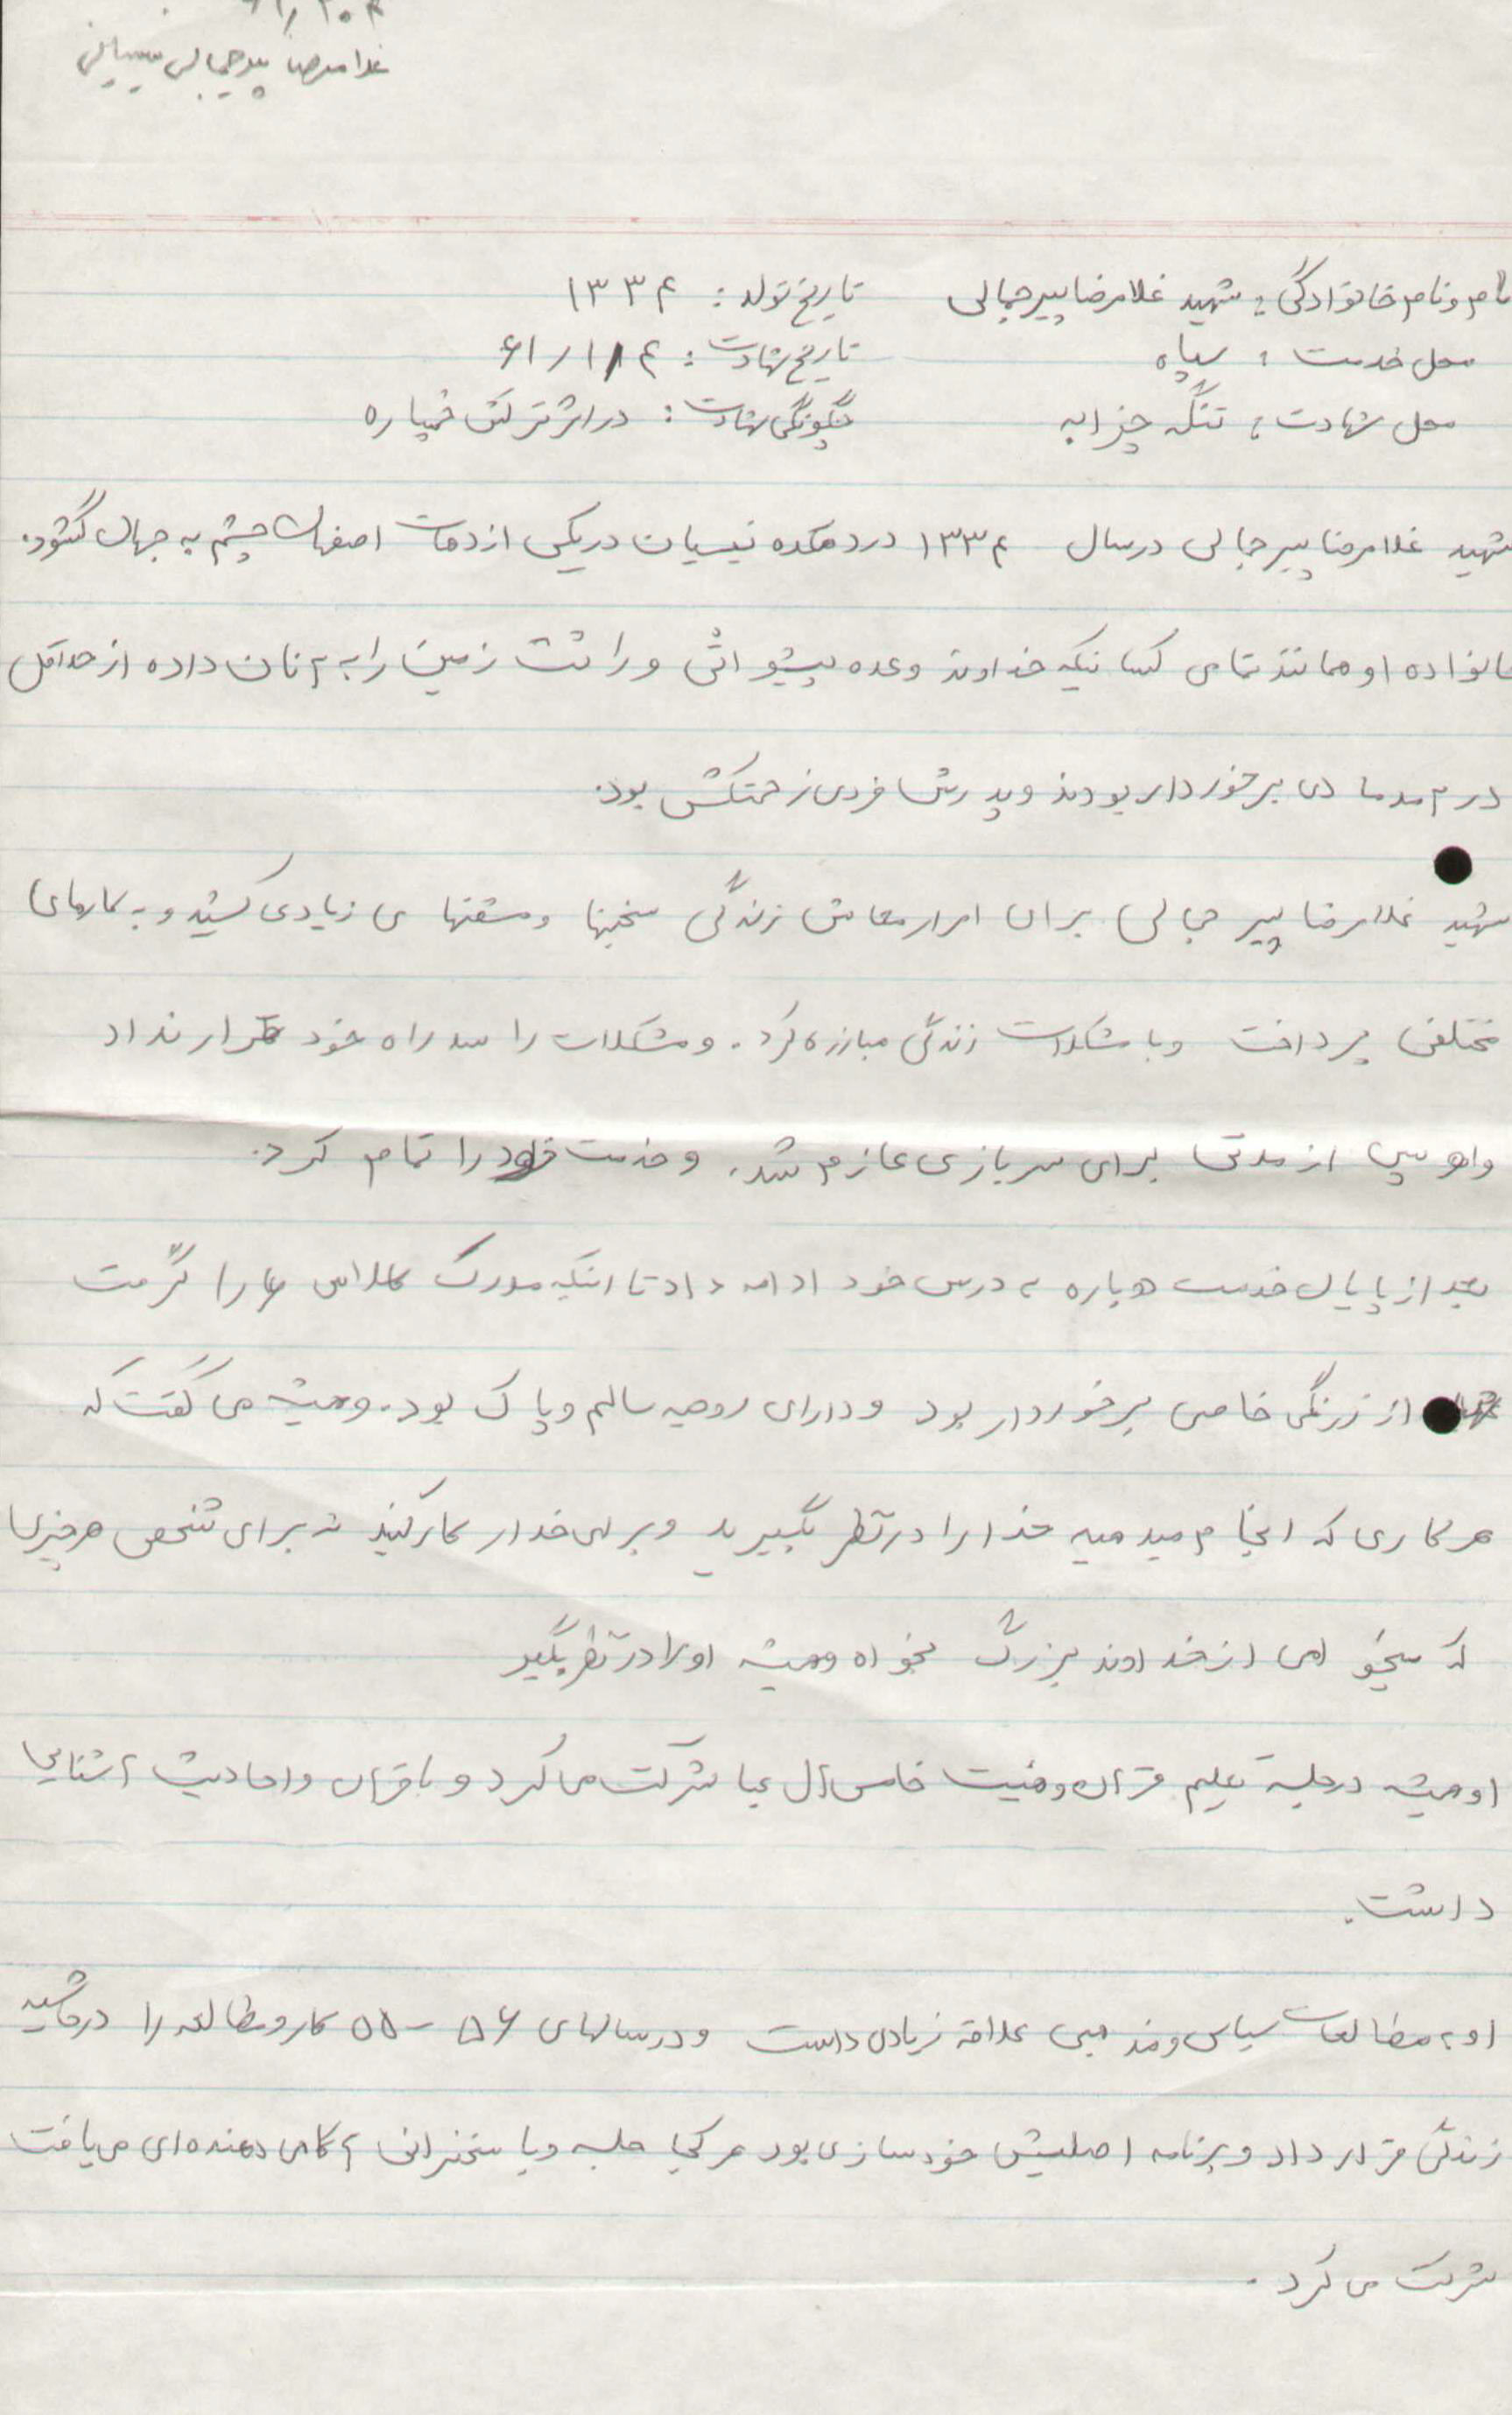 غلامرضا پیرجمالی نیسیانی
نام و نام خانوادگی : شهید غلامرضا پیرجمالی تاریخ تولد : ۱۳۳۴
محل خدمت : سپاه تاریخ شهادت : ۶۱/۱/۴
محل شهادت : تنگه چزابه چگونگی شهادت : در اثر ترکش خمپاره
شهید غلامرضا پیرجمالی در سال ۱۳۳۴ در دهکده نیسیان در یکی از دهات اصفهان چشم به جهان گشود.
خانواده او همانند تمامی کسانیکه خداوند وعده پیشوائی و راثت زمین را به آنان داده از حداقل
درآمد مادی برخوردار بودند و پدرش فردی زحمتکش بود.
شهید غلامرضا پیرجمالی برای امرار معاش زندگی سختیها و مشقتهای زیادی کشید و به کارهای
مختلفی پرداخت و با مشکلات زندگی مبارزه کرد. و مشکلات را سد راه خود قرار نداد
و او پس از مدتی برای سربازی عازم شد. و خدمت خود را تمام کرد.
بعد از پایان خدمت دوباره به درس خود ادامه داد تا اینکه مدرک کلاس را گرفت
از زرنگی خاصی برخوردار بود و دارای روحیه سالم و پاک بود. و همیشه می گفت که
هر کاری که انجام میدهید خدا را در نظر بگیرید و برای خدا کار کنید نه برای شخص هر چیزی
که میخواهی از خداوند بزرگ بخواه و همیشه او را در نظر بگیر
او همیشه در جلسه تعلیم قرآن و هیئت خامس آل عبا شرکت می کرد و با قرآن و احادیث آشنایی
داشت.
او به مطالعات سیاسی و مذهبی علاقه زیادی داشت و در سالهای ۵۶ - ۵۵ کار و مطالعه را در حاشیه
زندگی قرار داد و برنامه اصلیش خودسازی بود هر کجا جلسه و یا سخنرانی آگاهی دهنده ای می یافت
شرکت می کرد.